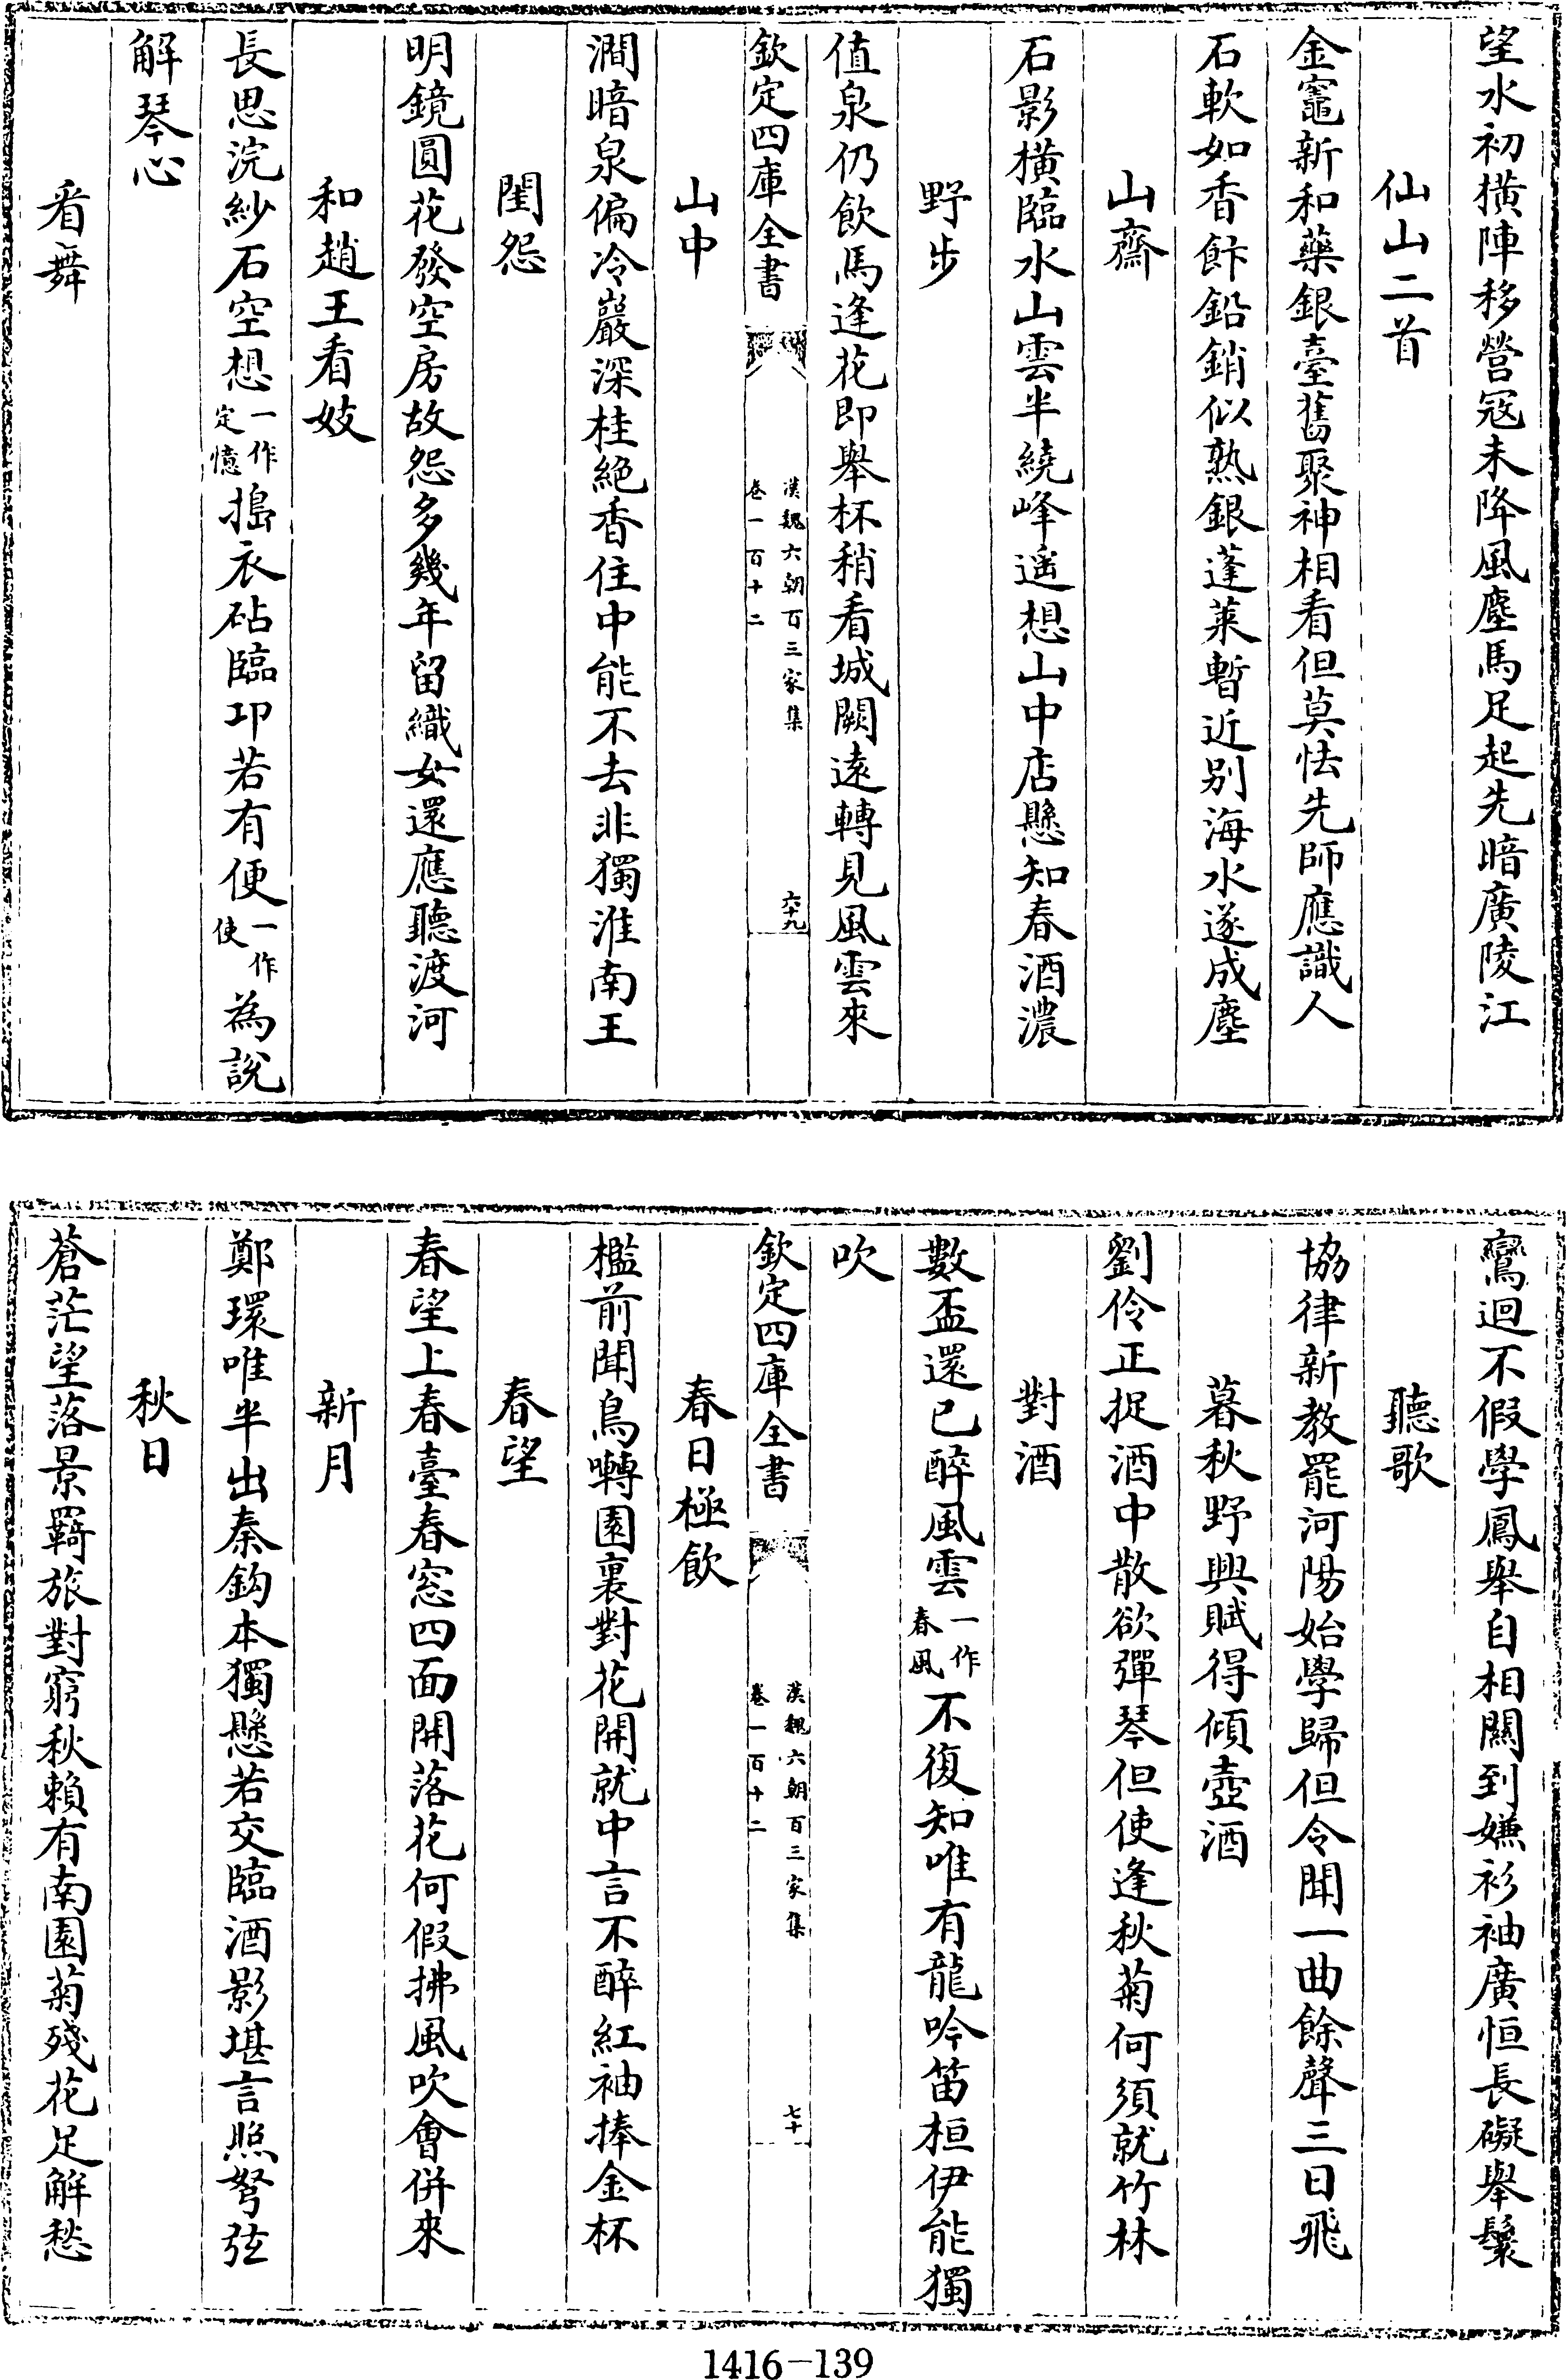 望水初橫陣移營冦未降風塵馬足起先暗廣陵江
仙山二首
金竈新和藥銀臺舊聚神相看但莫怯先師應識人
石軟如香飰鉛銷似熟銀蓬萊暫近别海水遂成塵
山齋
石影橫臨水山雲半繞峰遥想山中店懸知春酒濃
野步
值泉仍飲馬逢花即舉杯稍看城闕遠轉見風雲來
欽定四庫全書
漢魏六朝百三家集
卷一百十二
六十九
山中
澗暗泉偏冷巖深桂絶香住中能不去非獨淮南王
閨怨
明鏡圓花發空房故怨多幾年留織女還應聽渡河
和趙王看妓
長思浣紗石空想一作定憶搗衣砧臨卭若有便一作使為説
解琴心
看舞
鸞迴不假學鳳舉自相關到嫌衫袖廣恒長礙舉鬟
聽歌
協律新教罷河陽始學歸但令聞一曲餘聲三日飛
暮秋野興賦得傾壺酒
劉伶正捉酒中散欲彈琴但使逢秋菊何須就竹林
對酒
數盃還已醉風雲一作春風不復知唯有龍吟笛桓伊能獨
吹
欽定四庫全書
漢魏六朝百三家集
卷一百十二
七十
春日極飲
檻前聞鳥囀園裏對花開就中言不醉紅袖捧金杯
春望
春望上春臺春窓四面開落花何假拂風吹會併來
新月
鄭環唯半出秦鈎本獨懸若交臨酒影堪言照弩弦
秋日
蒼茫望落景羈旅對窮秋賴有南園菊殘花足解愁
1416-139